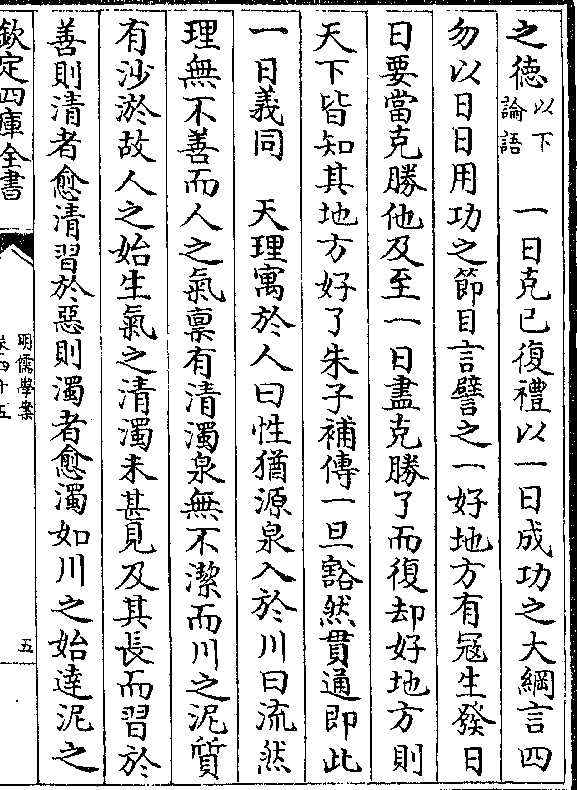 之德以下論語　一日克己復禮以一日成功之大綱言四
勿以日日用功之節目言譬之一好地方有冦生發日
日要當克勝他及至一日盡克勝了而復却好地方則
天下皆知其地方好了朱子補傳一旦豁然貫通即此
一日義同　天理寓於人曰性猶源泉入於川曰流然
理無不善而人之氣禀有清濁泉無不潔而川之泥質
有沙淤故人之始生氣之清濁未甚見及其長而習於
善則清者愈清習於惡則濁者愈濁如川之始達泥之
欽定四庫全書
明儒學案
卷四十五
五